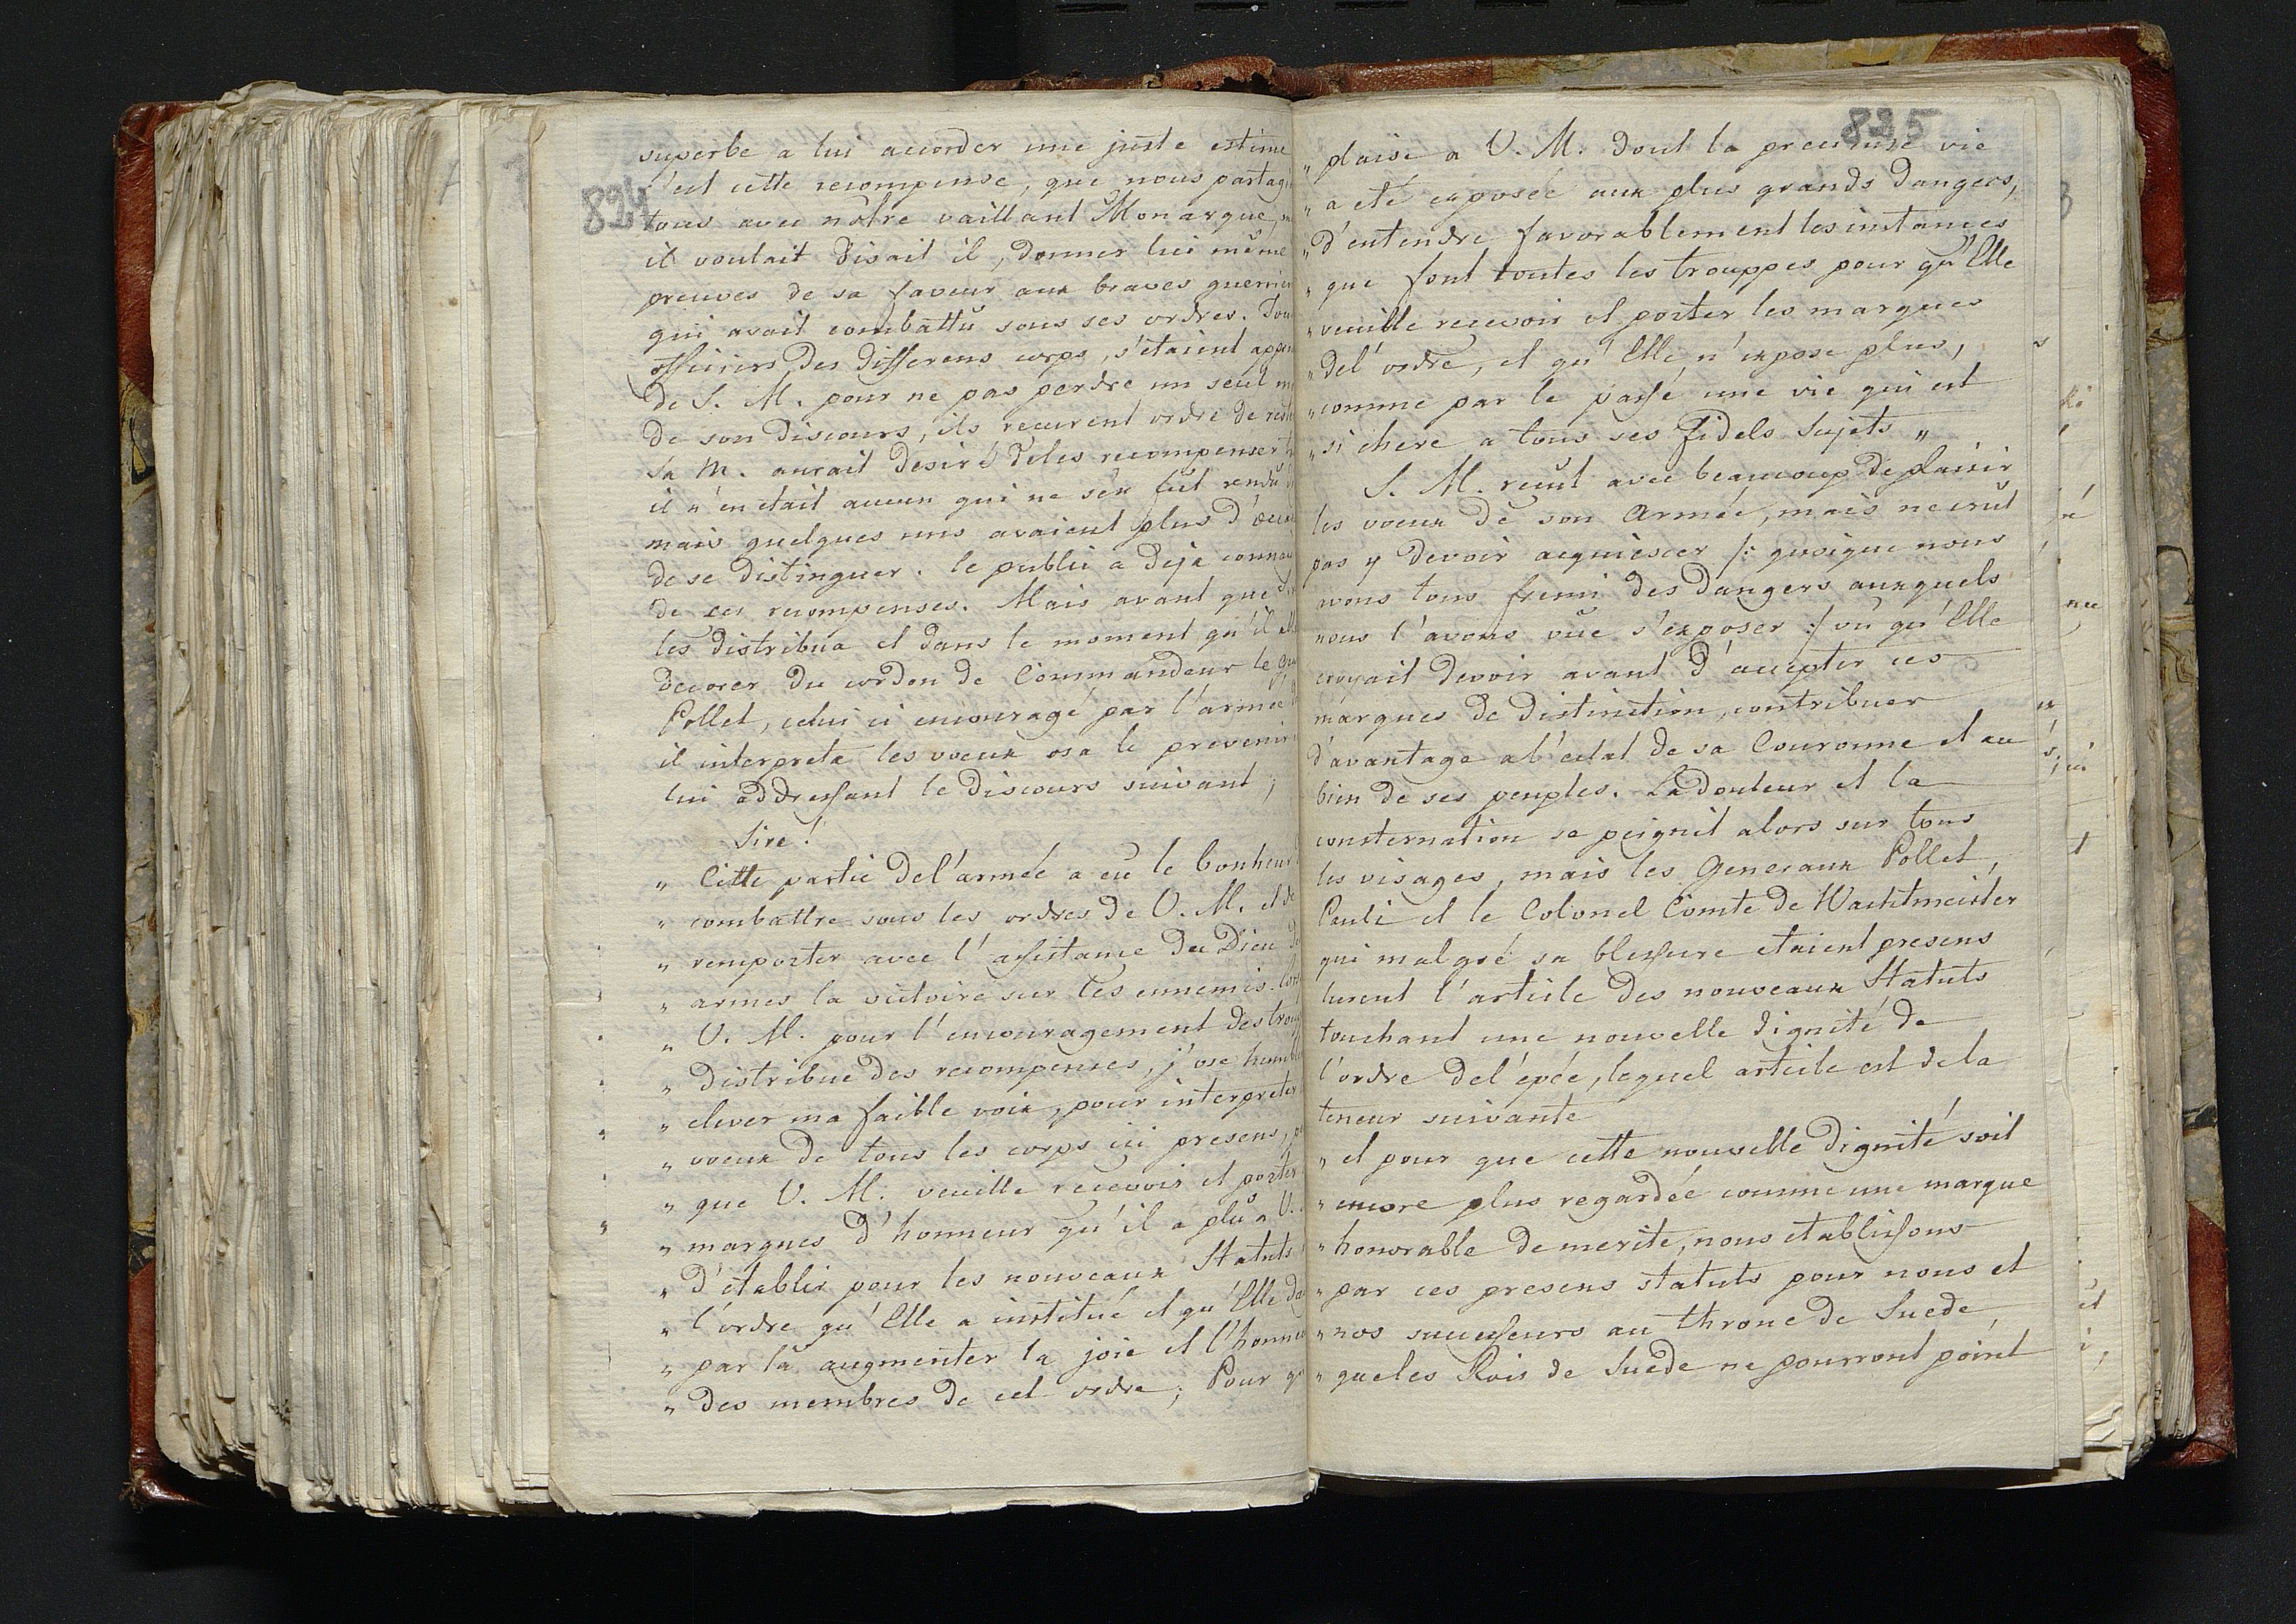 824
superbe a lui accorder une juste estime
c'est cette recompense, que nous partag
tous avec nôtre vaillant Monarque,
il voulait disait il, donner lui même
preuves de sa faveur aux braves guerrier
qui avait combattû sous ses ordres. Tou
officiers des differens corps, s'etaient appr
de S. M. pour ne pas perdre un seul m
de son discours, ils recurent ordre de rest
Sa M. aurait desiré deles recompenser t
il n'en etait aucun qui ne s'en fut rendû
mais quelques uns avaient plus d'occa
de se distinguer. le public a deja conna
de ces recompenses. Mais avant que
les distribua et dans le moment qu'il all
decorer du cordon de Commandeur le
Pollet, celui ci encouragé par l'armée
il interpreta les voeux osa le prevenir
lui addressant le discours suivant;
Sire!
„ Cette partie del'armée a eu le bonheur
„ combattre sous les ordres de V. M. et de
„ remporter avec l'assistance du Dieu
„ armes la victoire sur les ennemis.
„ V. M. pour l'encouragement des troup
„ distribue des recompenses, j'ose humble
„ elever ma faible voix, pour interpreter
„ voeux de tous les corps ici presens,
„ que V. M. veuille recevoir et porter
„ marques d'honneur qu'il a plû a V.
„ d'etablir pour les nouveaux Statuts
„ l'ordre qu'Elle a institué et qu'Elle da
„ par la augmenter la joie et l'honneu
„ des membres de cet ordre; Pour qu
825
„ plaise a V. M. dont la precieuse vie
„ a eté exposée aux plus grands dangers,
„ d'entendre favorablement les instances
„ que font toutes les trouppes pour qu'Elle
„ veuille recevoir et porter les marques
„ del'ordre, et qu'Elle n'expose plus,
„ comme par le passé une vie qui est
„ si chere a tous ses fidels Sujets „
S. M. recut avec beaucoup de plaisir
les voeux de son Armée, mais ne crut
pas y devoir acquiescer /: quoique nous
avons tous fremi des dangers auxquels
nous l'avons vûe s'exposer :/ vû qu'Elle
croyait devoir avant d'accepter ces
marques de distinction, contribuer
d'avantage al'eclat de sa Couronne et au
bien de ses peuples. La douleur et la
consternation se peignit alors sur tous
les visages, mais les Generaux Pollet,
Pauli et le Colonel Comte de Wachtmeister
qui malgré sa blessure etaient presens
lurent l'article des nouveaux Statuts
touchant une nouvelle dignité de
l'ordre del'epée, lequel article est de la
teneur suivante
„ et pour que cette nouvelle dignité soit
„ encore plus regardée comme une marque
„ honorable de merite, nous etablissons
„ par ces presens statuts pour nous et
„ nos successeurs au throne de Suede
„ queles Rois de Suede ne pourront point